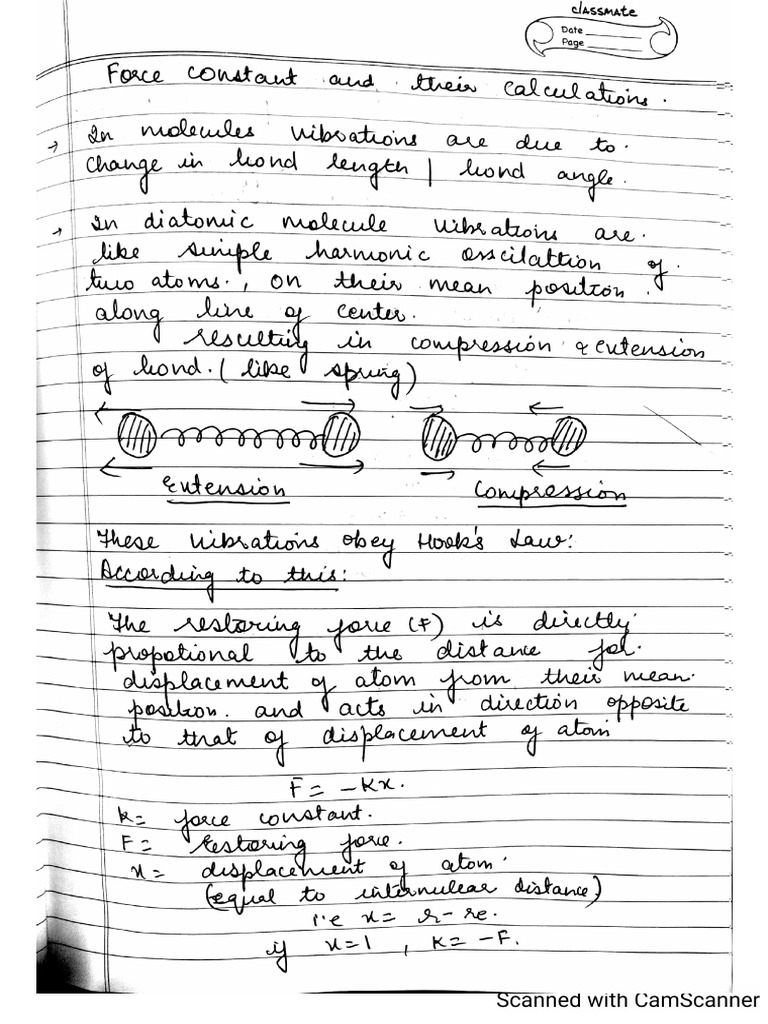 classmate
Date
Page
Force constant and their calculations.
→ In molecules vibrations are due to
change in bond length | bond angle.
→ In diatomic molecule vibrations are
like simple harmonic osscilattion of
two atoms., on their mean position
along line of center.
resulting in compression & extension
of bond. (like spring)
Extension
Compression
These vibrations obey Hook's Law:
According to this:
The restoring force (F) is directly
propotional to the distance for
displacement of atom from their mean
position. and acts in direction opposite
to that of displacement of atom
F = -Kx.
K= force constant.
F= restoring force.
x= displacement of atom.
(equal to internulear distance)
i.e x = r-re.
if x=1 , K= -F.
Scanned with CamScanner